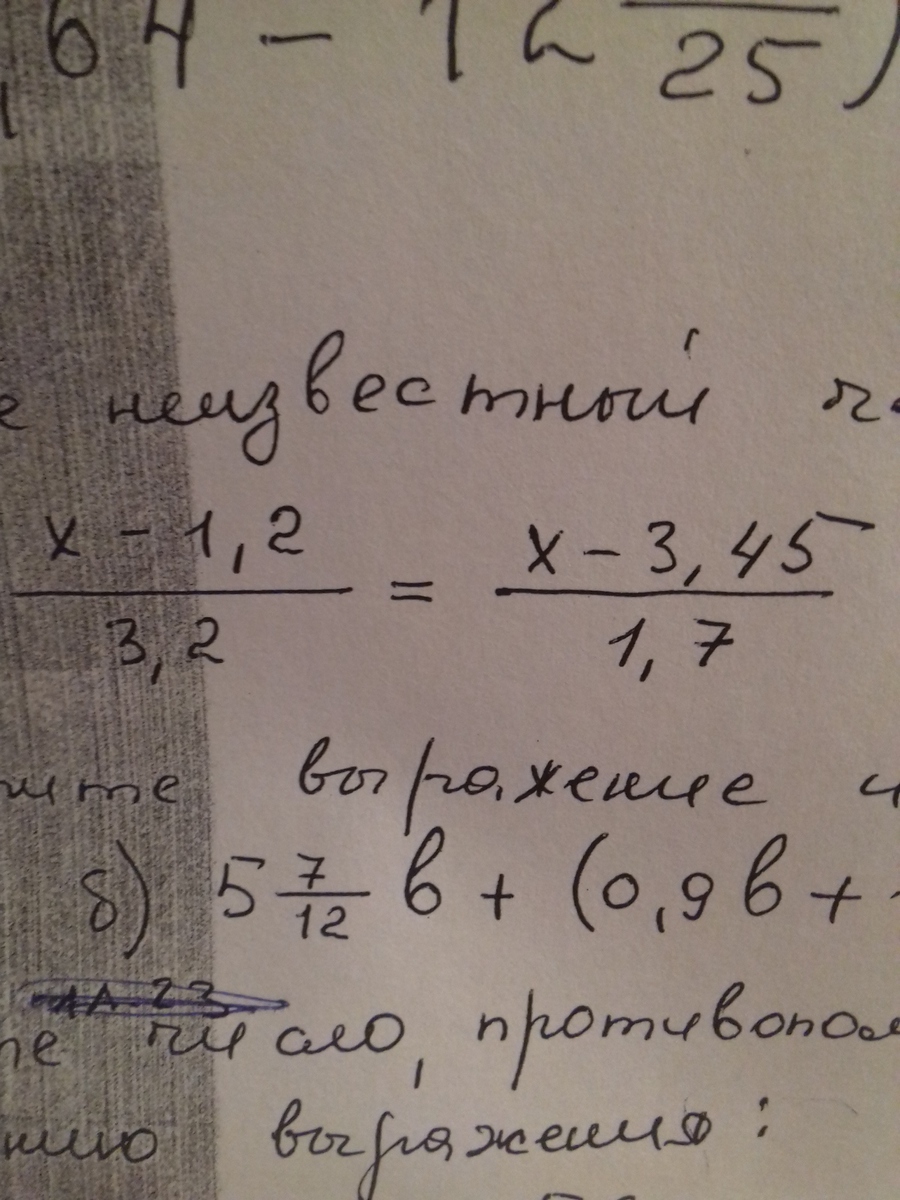 ,64 - 12 /25)
е неизвестный
(x - 1,2)/3,2 = (x - 3,45)/1,7
ите выражение
б) 5 7/12 в + (0,9в +
те число, противопол
нию выражения: